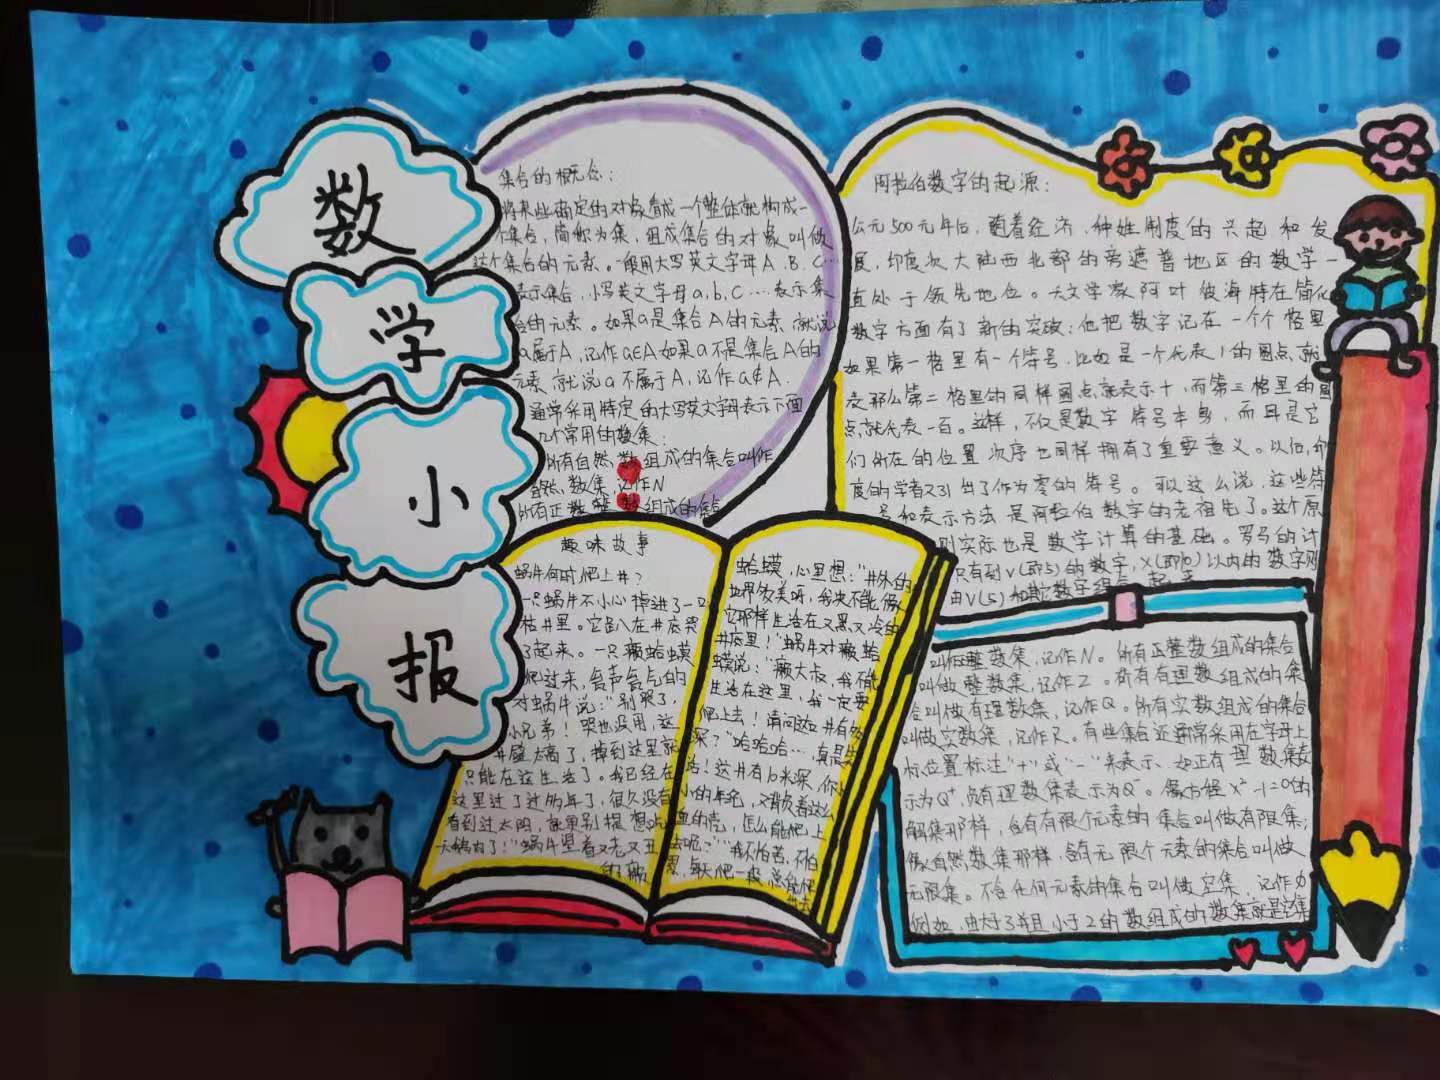 数
学
小
报
集合的概念:
将某些确定的对象看成一个整体就构成一
个集合,简称为集,组成集合的对象叫做
这个集合的元素。一般用大写英文字母A、B、C…
表示集合,小写英文字母a,b,c…表示集
合的元素。如果a是集合A的元素,就说
a属于A,记作a∈A如果a不是集合A的
元素,就说a不属于A,记作a∉A.
通常采用特定的大写英文字母表示下面
几个常用的数集:
所有自然数组成的集合叫作
自然数集,记作N
所有正整数组成的集合
阿拉伯数字的起源:
公元500元年后,随着经济、种姓制度的兴起和发
展,印度次大陆西北部的旁遮普地区的数学一
直处于领先地位。天文学家阿叶彼海特在简化
数字方面有了新的突破:他把数字记在一个个格里
如果第一格里有一个符号,比如是一个代表1的圆点,就
表那么第二格里的同样圆点就表示十,而第三格里的圆
点就代表一百。这样,不仅是数字符号本身,而且是它
们所在的位置次序也同样拥有了重要意义。以后,印
度的学者又引出了作为零的符号。可以这么说,这些符
号和表示方法是阿拉伯数字的老祖先了。这个原
则实际也是数字计算的基础。罗马的计
只有到V(即5)的数字,X(即10)以内的数字则
由V(5)和其它数字组合起来
趣味故事
蜗牛何时爬上井?
一只蜗牛不小心掉进了一口
枯井里。它趴在井底哭
了起来。一只癞蛤蟆
爬过来,瓮声瓮气的
对蜗牛说:“别哭了,
小兄弟!哭也没用,这
井壁太高了,掉到这里就
只能在这生活了。我已经在
这里过了许多年了,很久没有
看到过太阳,就更别提想吃
天鹅肉了!”蜗牛望着又老又丑
的癞
蛤蟆,心里想:“井外的
世界多美呀,我决不能像
它那样生活在又黑又冷的
井底里!”蜗牛对癞蛤
蟆说:“癞大叔,我不能
生活在这里,我一定要
爬上去!请问这井有多
深?”“哈哈哈…,真是笑
话!这井有10米深,你小
小的年纪,又背负着这么
重的壳,怎么能爬上
去呢?”“我不怕苦、不怕
累,每天爬一段,总能爬
出去
叫作正整数集,记作N。所有正整数组成的集合
叫做整数集,记作Z。所有有理数组成的集
合叫做有理数集,记作Q。所有实数组成的集合
叫做实数集,记作R。有些集合还通常采用在字母上
标位置标注“+”或“-”来表示、如正有理数集表
示为Q⁺,负有理数集表示为Q⁻。像方程x²-1=0的
解集那样,含有有限个元素的集合叫做有限集;
像自然数集那样,含有无限个元素的集合叫做
无限集。不含任何元素的集合叫做空集,记作∅
例如,由大于3并且小于2的数组成的数集就是空集